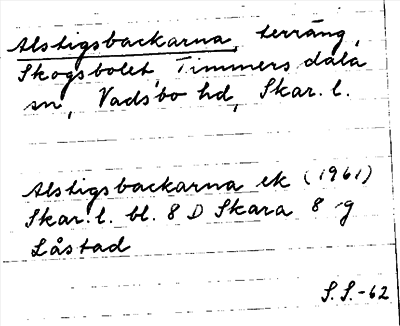 Alstigsbackarna, terräng,
Skogsbolet, Timmersdala
sn, Vadsbo hd, Skar. l.
Alstigsbackarna ek (1961)
Skar. l. bl. 8 D Skara 8 g
Låstad
S.S.-62